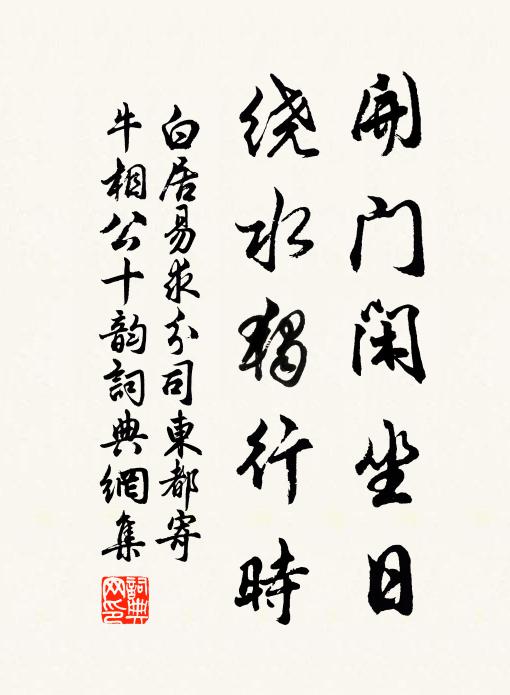 開门闲坐日
绕水獨行時
白居易求分司東都寄
牛相公十韵詞典網集
詞典网印